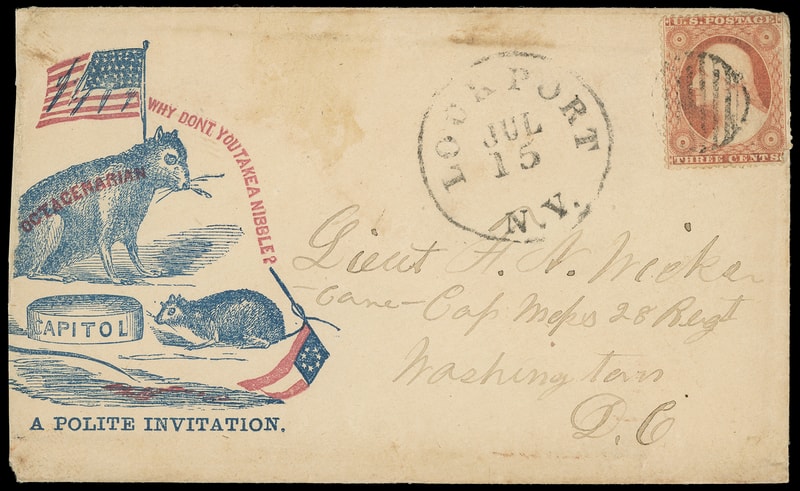 WHY DONT YOU TAKE A NIBBLE?
OCTAGENARIAN
CAPITOL
A POLITE INVITATION.
LOCKPORT
JUL
15
N.Y.
U.S. POSTAGE
THREE CENTS
Lieut
Care Cap 28 Regt
Washington
D.C